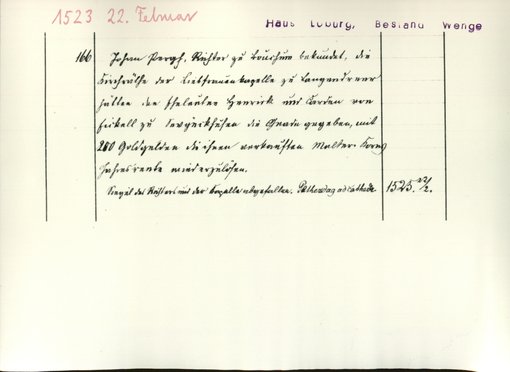 1523 22. Februar
Haus Loburg, Bestand Wenge
166 Johan Pargh, Richter zu Boichum bekundet, die
Kirchräthe der Liebfrauenkapelle zu Langendreer
hätten den Eheleuten Henrich und von
zu die Gnade gegeben, mit
200 Goldgulden die ihnen verkauften Malter Korns
Jahresrente wiederzulösen.
Siegel des Richters und der Kapelle abgefallen. ad cathedra 1523. 22/2.